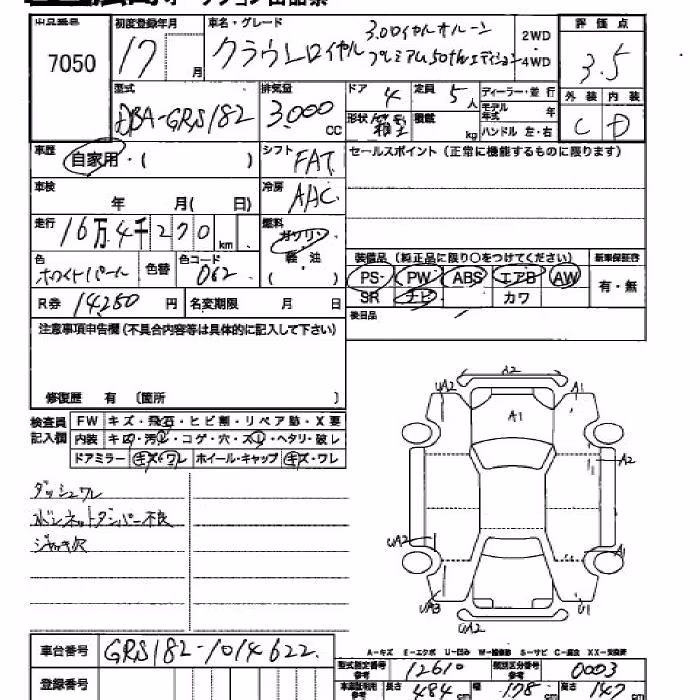 出品番号
7050
初度登録年月
17 月
車名・グレード
クラウンロイヤル
3.0ロイヤルサルーン
プレミアム50thエディション
2WD
4WD
評価点
3.5
外装 内装
C D
型式
DBA-GRS182
排気量
3,000 CC
ドア 4
定員 5人
形状 箱型
積載 kg
ディーラー・並行
モデル年式 年
ハンドル 左・右
車歴
自家用・( )
シフト
FAT
セールスポイント(正常に機能するものに限ります)
車検
年 月( 日)
冷房
AAC
走行
16万4千270 km
燃料
ガソリン
軽・油
( )
色
ホワイトパール
色替
色コード
062
装備品(純正品に限り○をつけてください)
PS・ PW ABS エアB AW
SR ナビ カワ
新車保証書
有・無
R券 14,280 円
名変期限 月 日
後日品
注意事項申告欄(不具合内容等は具体的に記入して下さい)
修復歴 有 〔箇所 〕
検査員
記入欄
FW キズ・飛石・ヒビ割・リペア跡・X要
内装 キロ・汚レ・コゲ・穴・スレ・ヘタリ・破レ
ドアミラー キズ・ワレ ホイール・キャップ キズ・ワレ
ダッシュワレ
ボンネットダンパー不良
ジャッキ欠
A2
UA2 A1
A1
A2
UA2 A1
UA3 U1
UA2
A-キズ E-エクボ U-凹み W-補修跡 S-サビ C-腐食 XX-交換済
車台番号
GRS182-1014622
登録番号
型式指定番号
参考
12610
類別区分番号
参考
0003
長さ 484 cm
幅 178 cm
高さ 147 cm